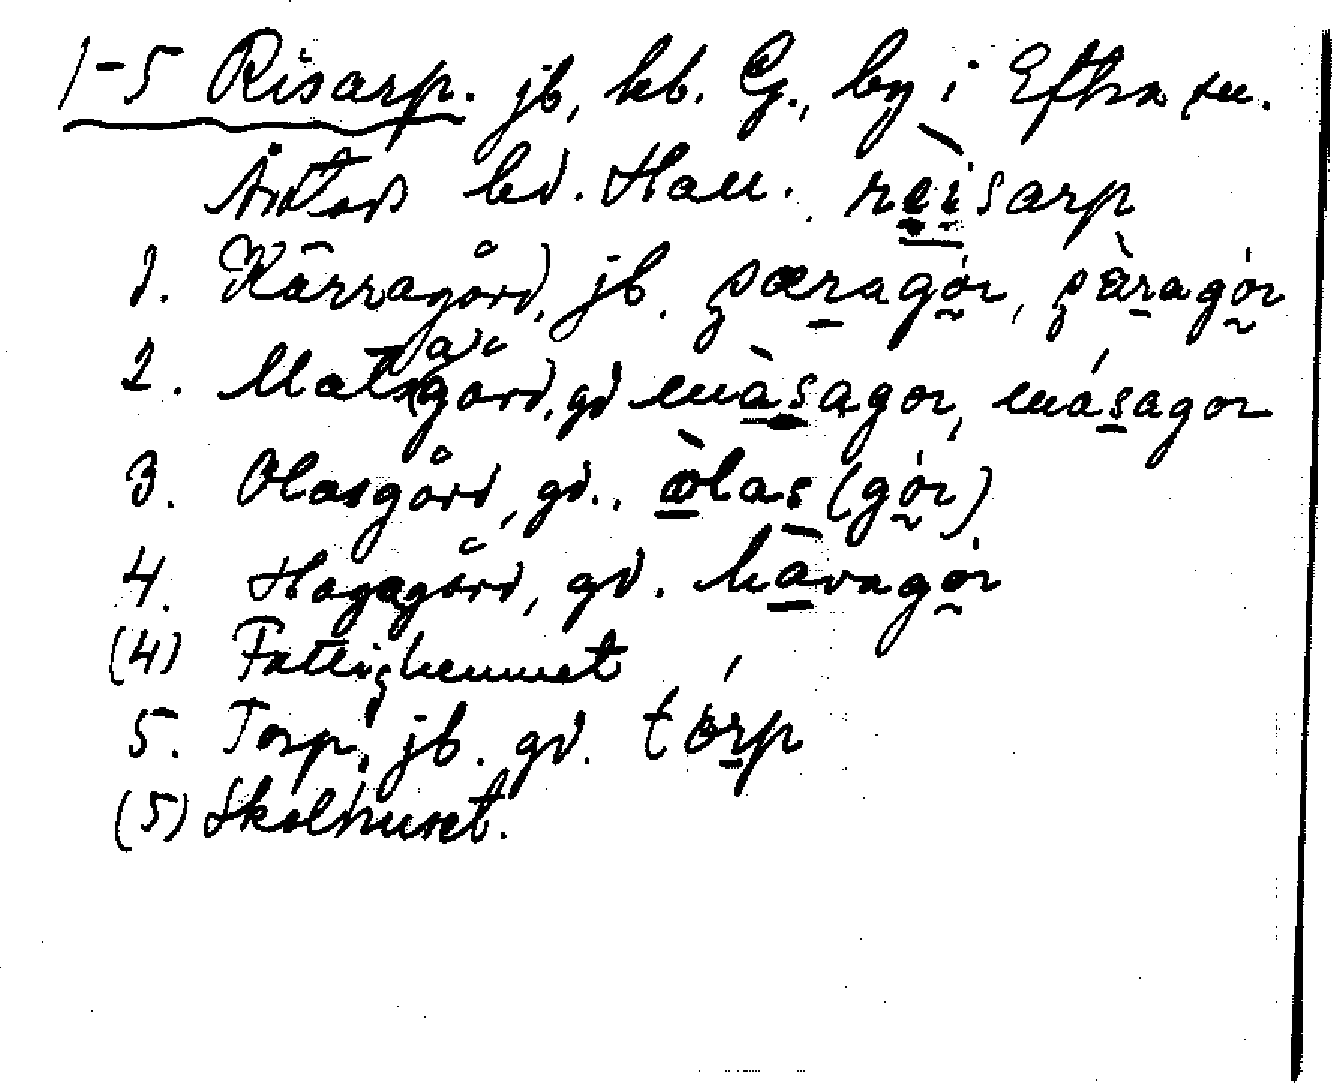 1-5 Risarp. jb, kb. G., by i Eftra sn.
Årstads hd. Hall. rèisarp
1. Kärragård, jb. çæragór, çàragór
2. Matsagård, gd màsagor, másagor
3. Olasgård, gd., òlas (gór)
4. Hagagård, gd. hàvagór
(4) Fattighemmet
5. Torp, jb. gd. tórp
(5) Skolhuset.